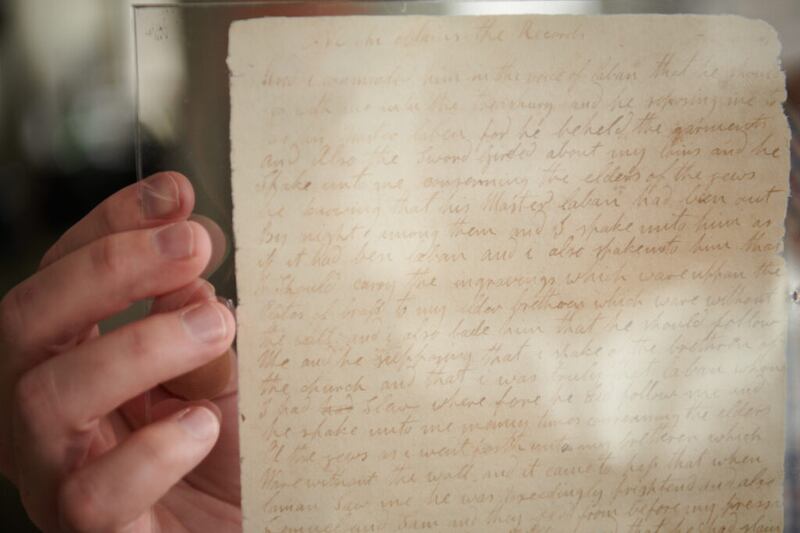 obtains the Records
him in the voice of laban that he should
me into the treasury and he suposing me
laban for he beheld the garments
and Also the Sword girded about my loins and he
Spake unto me concerning the elders of the gews
he knowing that his Master laban had ben out
By night among them and I spake unto him as
if it had ben laban and i also spake unto him that
I Should carry the ingravings which ware uppon the
Plates of brass to my elder brethren which ware without
the wall and i also bade him that he should follow
Me and he supposing that i spake of the brethren of
the church and that i was truly that laban whom
I had had Slain where fore he did follow me and
he spake unto me meney times concerning the elders
of the gews as i went forth unto my bretheren which
Ware without the wall and it came to pass that when
laman Saw me he was exceedingly frightend and also
Lemuel and Sam and they fled from before my presen
that he had slain